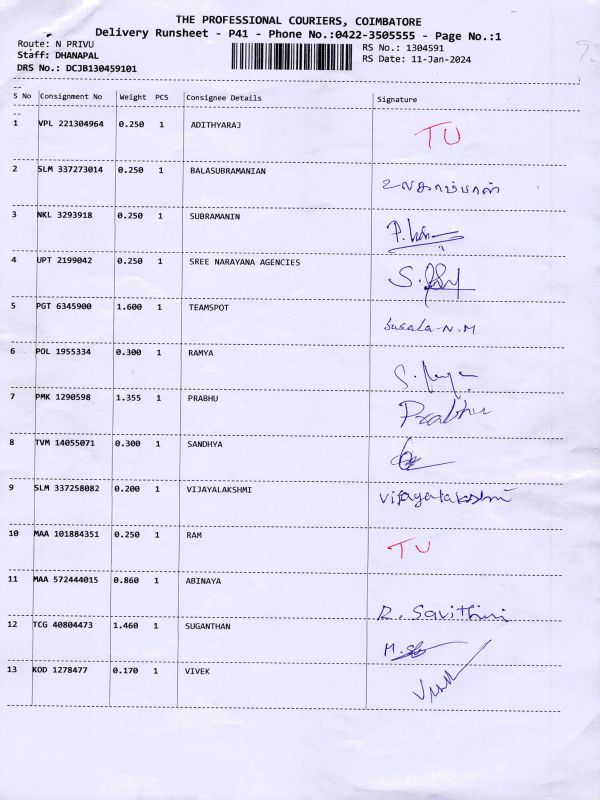 THE PROFESSIONAL COURIERS, COIMBATORE
Delivery Runsheet - P41 - Phone No.:0422-3505555 - Page No.:1
Route: N PRIVU
RS No.: 1304591
Staff: DHANAPAL
RS Date: 11-Jan-2024
DRS No.: DCJB130459101
S No Consignment No Weight PCS Consignee Details Signature
1 VPL 221304964 0.250 1 ADITHYARAJ TU
2 SLM 337273014 0.250 1 BALASUBRAMANIAN
3 NKL 3293918 0.250 1 SUBRAMANIN
4 UPT 2199042 0.250 1 SREE NARAYANA AGENCIES
5 PGT 6345900 1.600 1 TEAMSPOT Susala-N.M
6 POL 1955334 0.300 1 RAMYA
7 PMK 1290598 1.355 1 PRABHU Prabhu
8 TVM 14055071 0.300 1 SANDHYA
9 SLM 337258082 0.200 1 VIJAYALAKSHMI Vijayalakshmi
10 MAA 101884351 0.250 1 RAM TU
11 MAA 572444015 0.860 1 ABINAYA R. Savithiri
12 TCG 40804473 1.460 1 SUGANTHAN
13 KOD 1278477 0.170 1 VIVEK